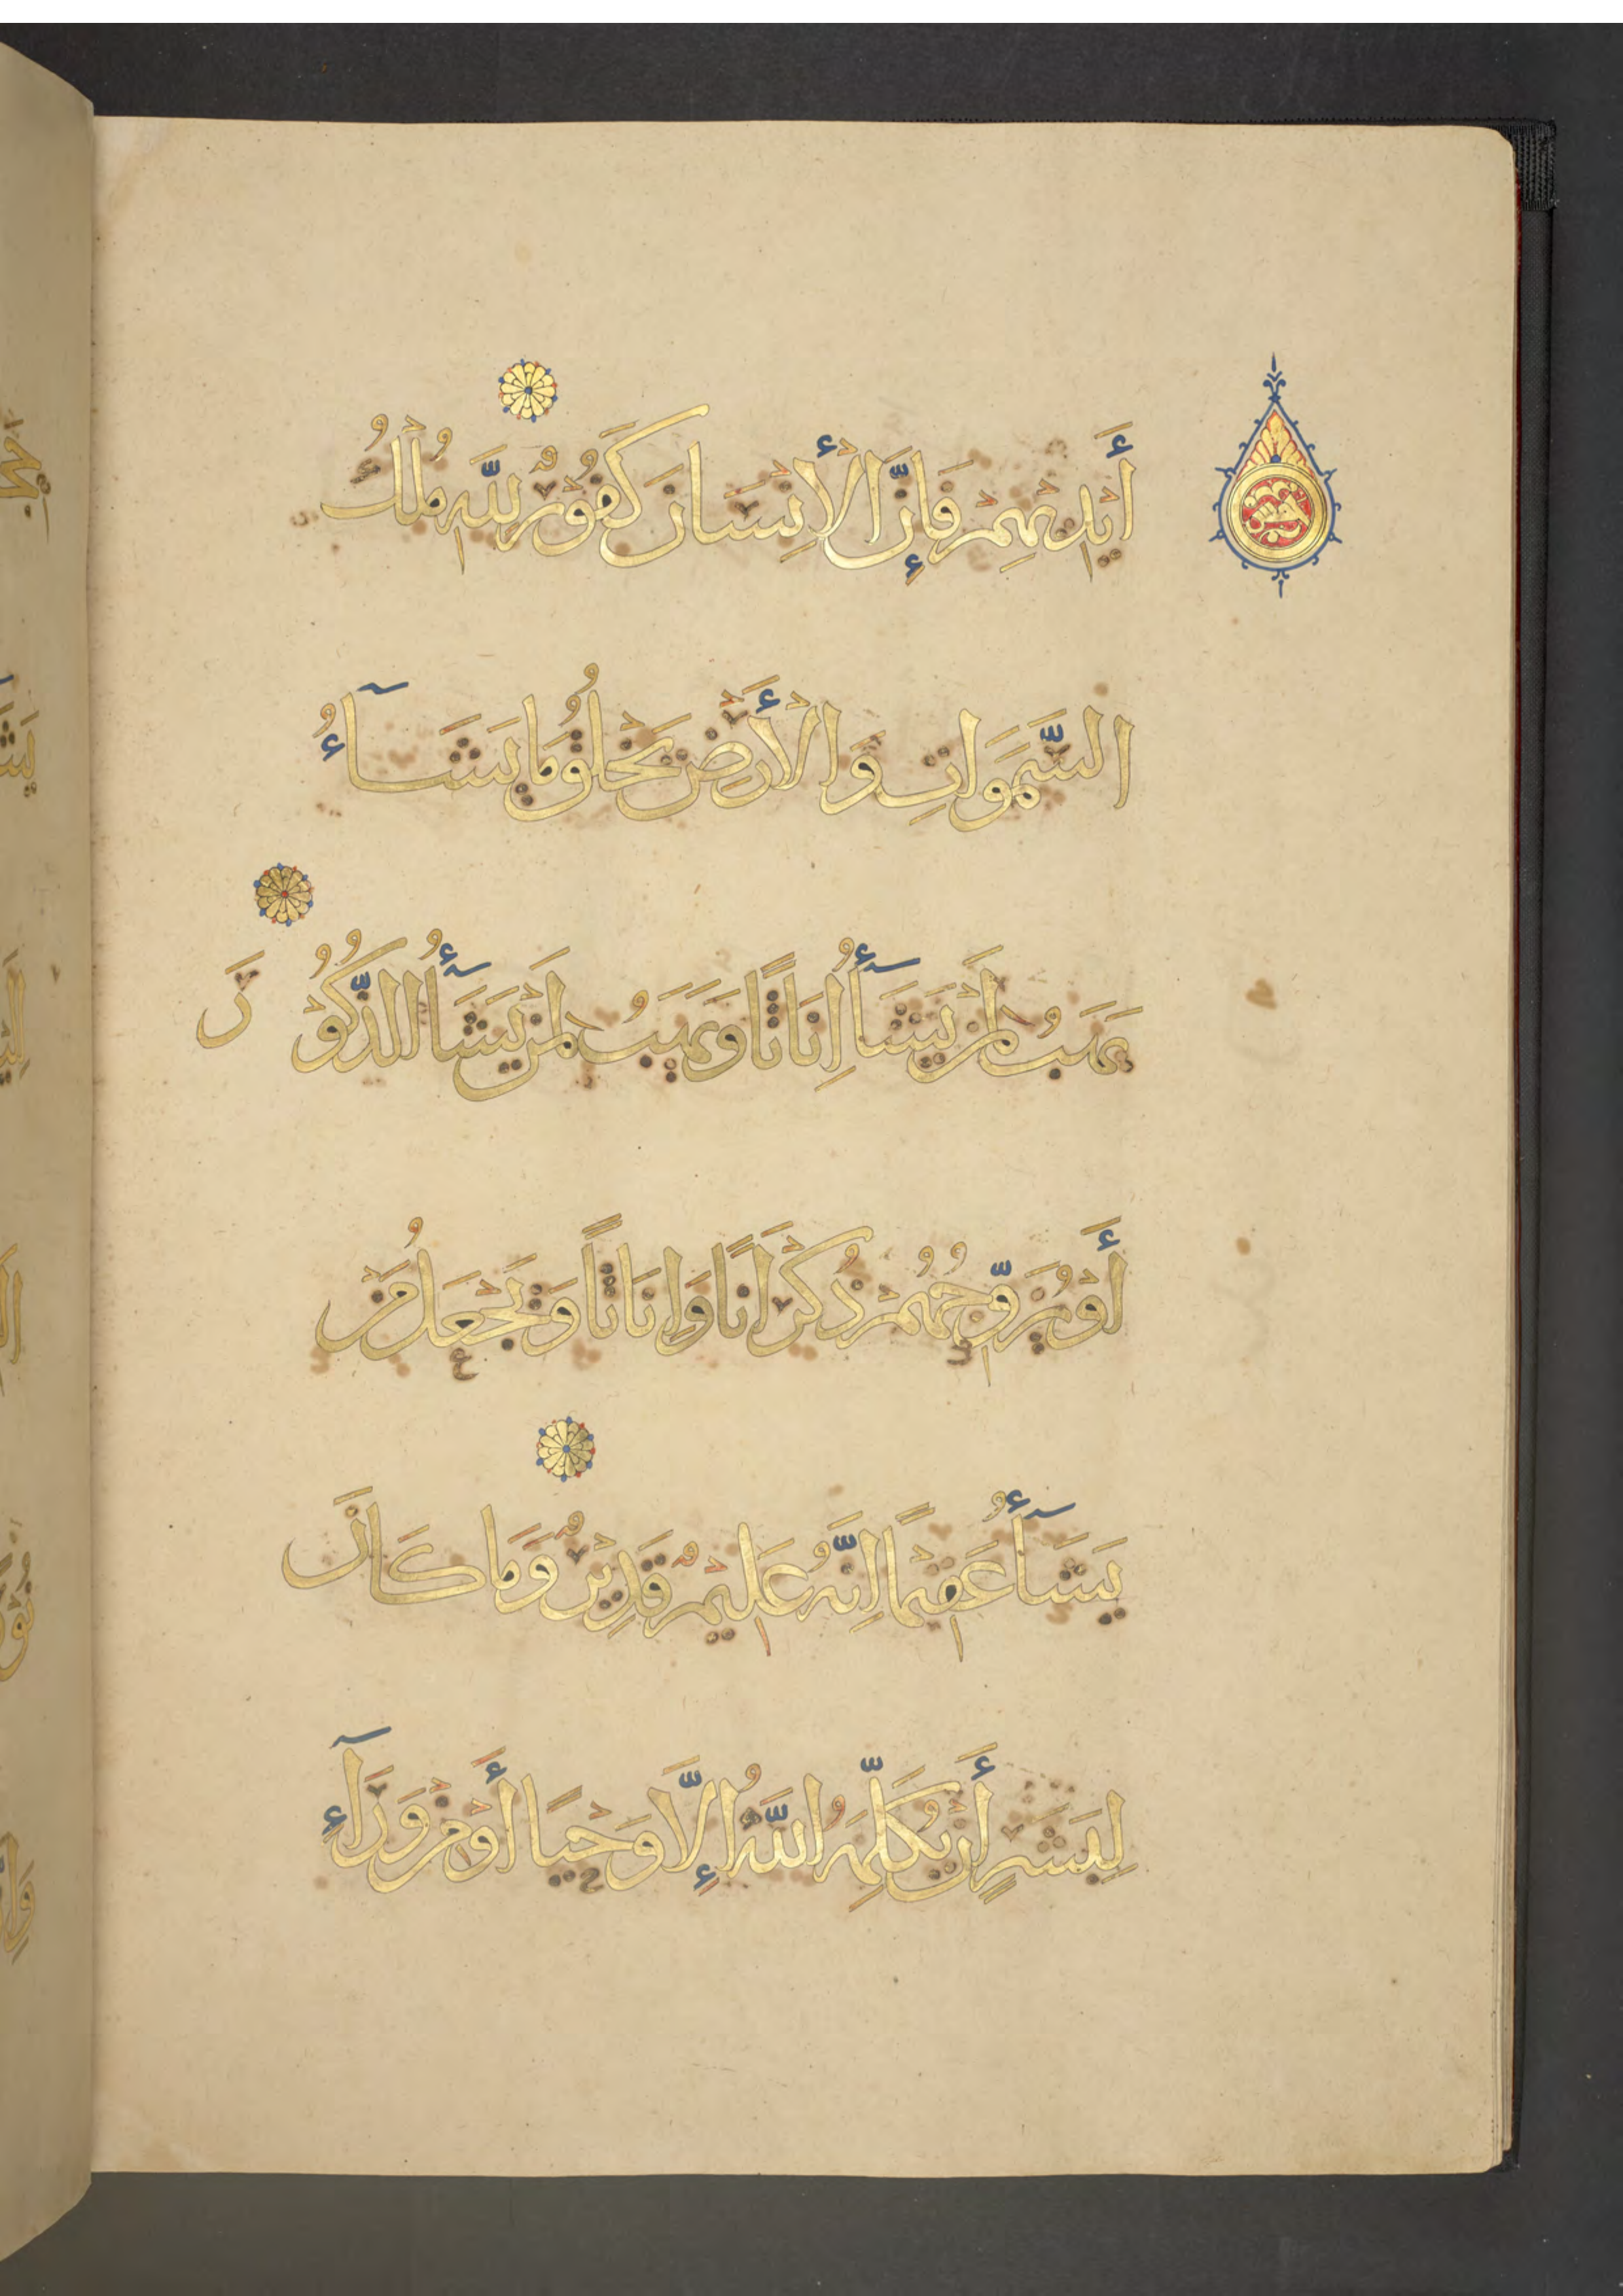 أَيْدِيهِمْ فَإِنَّ الْإِنْسَانَ كَفُوْرٌ لِلَّهِ مُلْكُ
السَّمَوَاتِ وَالْأَرْضِ يَخْلُقُ مَا يَشَآءُ
يَهَبُ لِمَنْ يَشَآءُ إِنَاثًا وَيَهَبُ لِمَنْ يَشَآءُ الذُّكُوْرَ
أَوْ يُزَوِّجُهُمْ ذُكْرَانًا وَإِنَاثًا وَيَجْعَلُ مَنْ
يَشَآءُ عَقِيْمًا إِنَّهُ عَلِيْمٌ قَدِيْرٌ وَمَا كَانَ
لِبَشَرٍ أَنْ يُكَلِّمَهُ اللَّهُ إِلَّا وَحْيًا أَوْ مِنْ وَرَآءِ